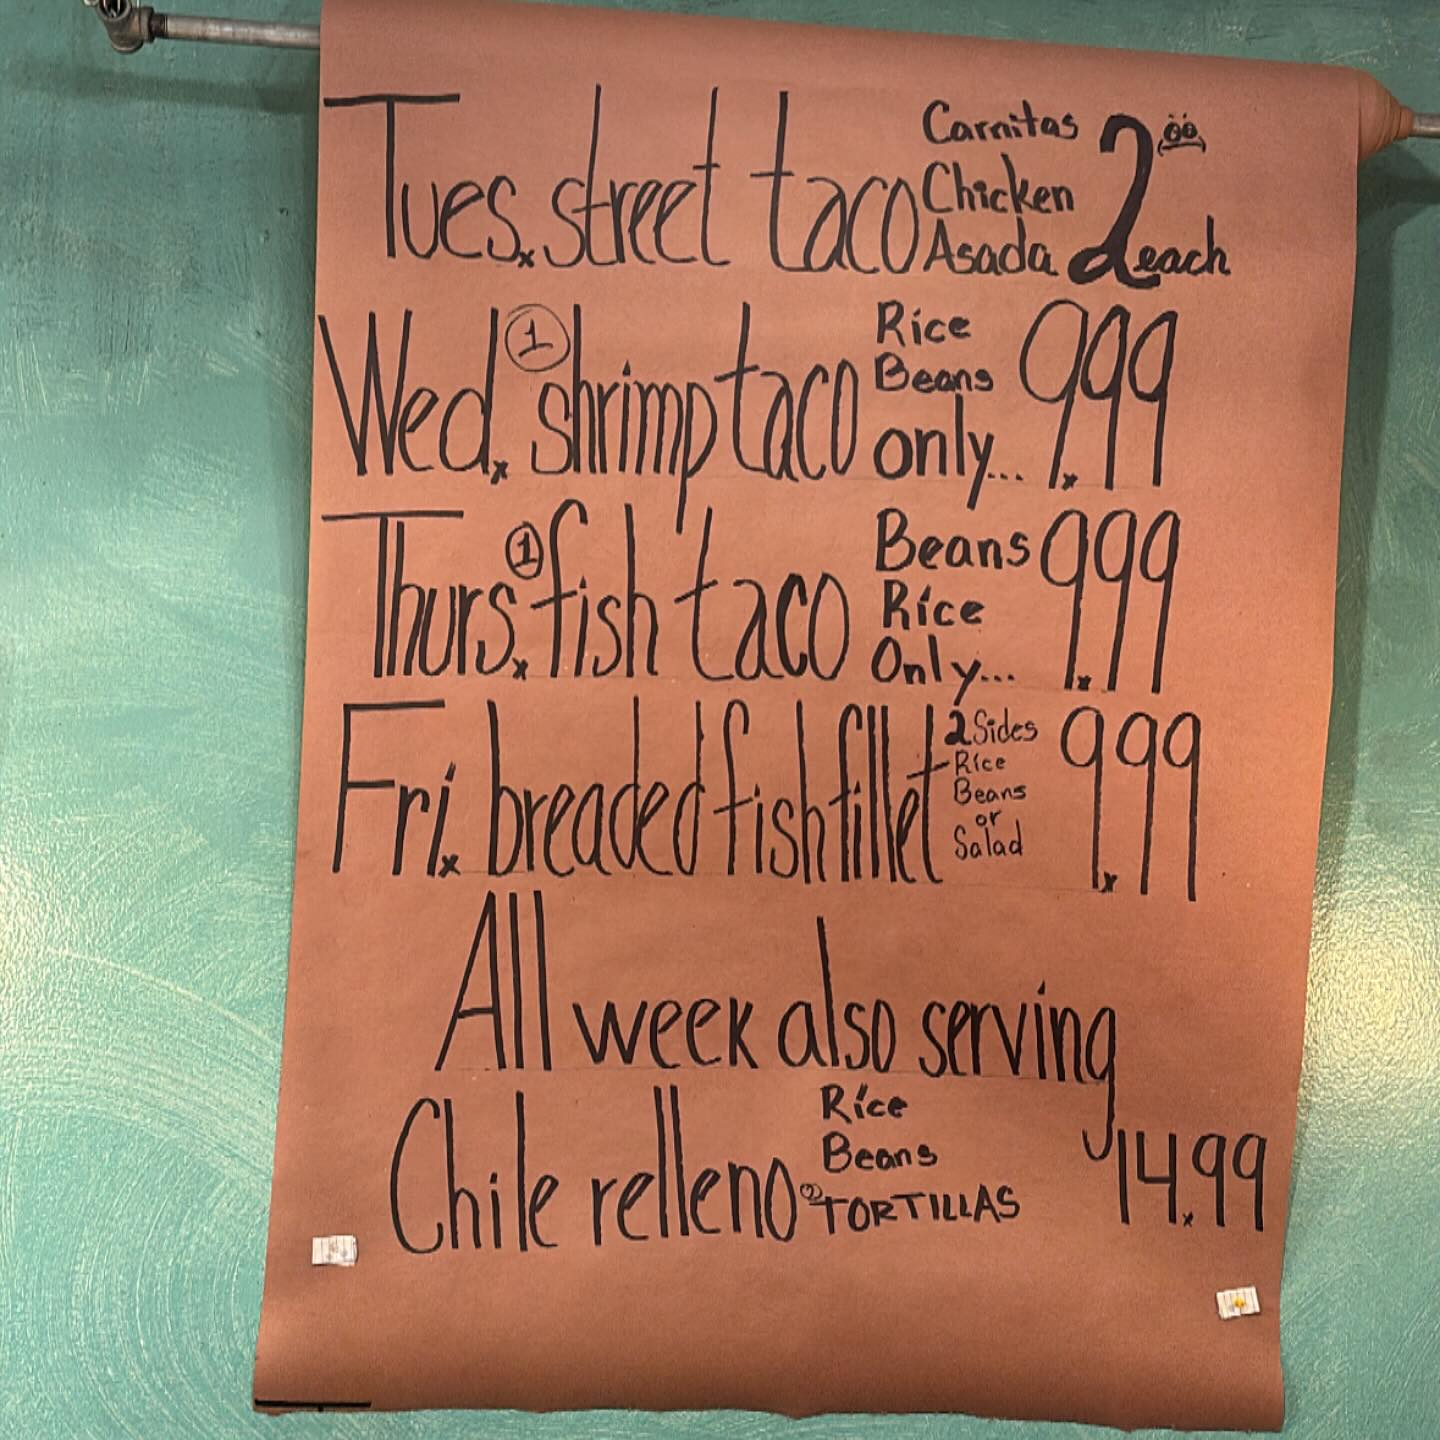 Tues. street taco Carnitas Chicken Asada 2.00 each
Wed. 1 shrimp taco Rice Beans only... 9.99
Thurs. 1 fish taco Beans Rice Only... 9.99
Fri. breaded fish fillet 2 Sides Rice Beans or Salad 9.99
All week also serving
Chile relleno Rice Beans 2 TORTILLAS 14.99